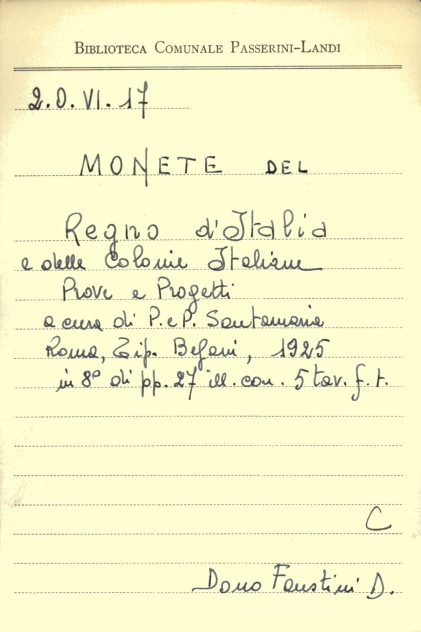 BIBLIOTECA COMUNALE PASSERINI-LANDI
2.O.VI.17
MONETE DEL
Regno d'Italia
e delle Colonie Italiane
Prove e Progetti
a cura di P. e P. Santamaria
Roma, Tip. Befani, 1925
in 8° di pp. 27 ill. con. 5 tav. f. t.
C
Dono Faustini D.